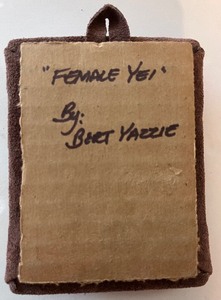 "FEMALE YEI"
By:
BERT YAZZIE